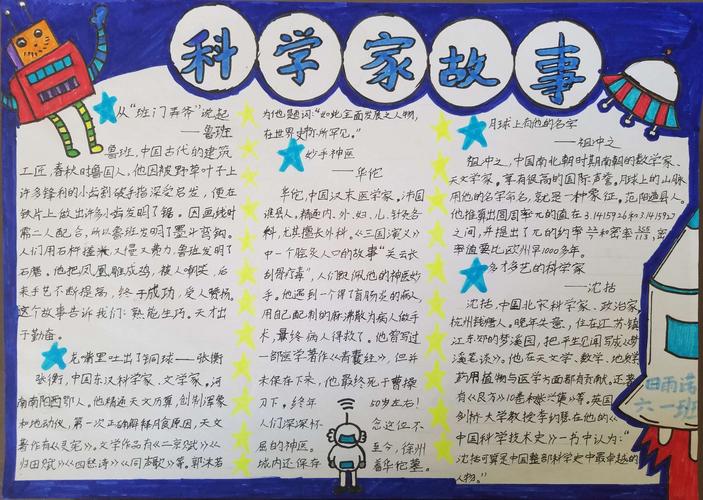 科学家故事
从“班门弄斧”说起
——鲁班
鲁班,中国古代的建筑
工匠,春秋时鲁国人,他因被野草叶子上
许多锋利的小齿割破手指深受启发,便在
铁片上做出许多小齿发明了锯。因画线时
需二人配合,所以鲁班发明了墨斗弯钩。
人们用石杵捣米又慢又费力,鲁班发明了
石磨。他把凤凰雕成鸡,被人嘲笑,后
来手艺不断提高,终于成功,受人赞扬。
这个故事告诉我们:熟能生巧。天才出
于勤奋。
龙嘴里吐出了铜球——张衡
张衡,中国东汉科学家、文学家。河
南南阳西鄂人。他精通天文历算,创制浑象
和地动仪,第一次正确解释月食原因,天文
著作有《灵宪》。文学作品有《二京赋》《
归田赋》《四愁诗》《同声歌》等。郭沫若
为他题词:“如此全面发展之人物,
在世界史所罕见。”
妙手神医
——华佗
华佗,中国汉末医学家。沛国
谯县人。精通内、外、妇、儿、针灸各
科,尤其擅长外科。《三国演义》
中一个脍炙人口的故事“关云长
刮骨疗毒”,人们敬佩他的神医妙
手。他遇到一个得了盲肠炎的病人,
用自己配制的麻沸散为病人做手
术,最终病人得救了。他曾写过
一部医学著作《青囊经》,但并
未保存下来,他最终死于曹操
刀下,终年50岁左右!
人们深深怀念这位不
屈的神医。至今,徐州
城内还保存着华佗墓。
月球上有他的名字
——祖冲之
祖冲之,中国南北朝时期南朝的数学家、
天文学家。享有很高的国际声誉。月球上的山脉
用他的名字命名,就是一种象征。范阳遒县人。
他推算出圆周率π的值在3.1415926和3.1415927
之间,并提出了π的约率22/7和密率355/113,密
率值要比欧州早1000多年。
多才多艺的科学家
——沈括
沈括,中国北宋科学家、政治家,
杭州钱塘人。晚年失意,住在江苏镇
江东郊的梦溪园,把平生见闻写成《梦
溪笔谈》。他在天文学、数学、地
药用植物与医学方面都有贡献。还著
有《良方》10卷和《》等。英国
剑桥大学教授李约瑟在他的《
中国科学技术史》一书中认为:“
沈括可算是中国整部科学史中最卓越的
人物。”
田雨诺
六一班